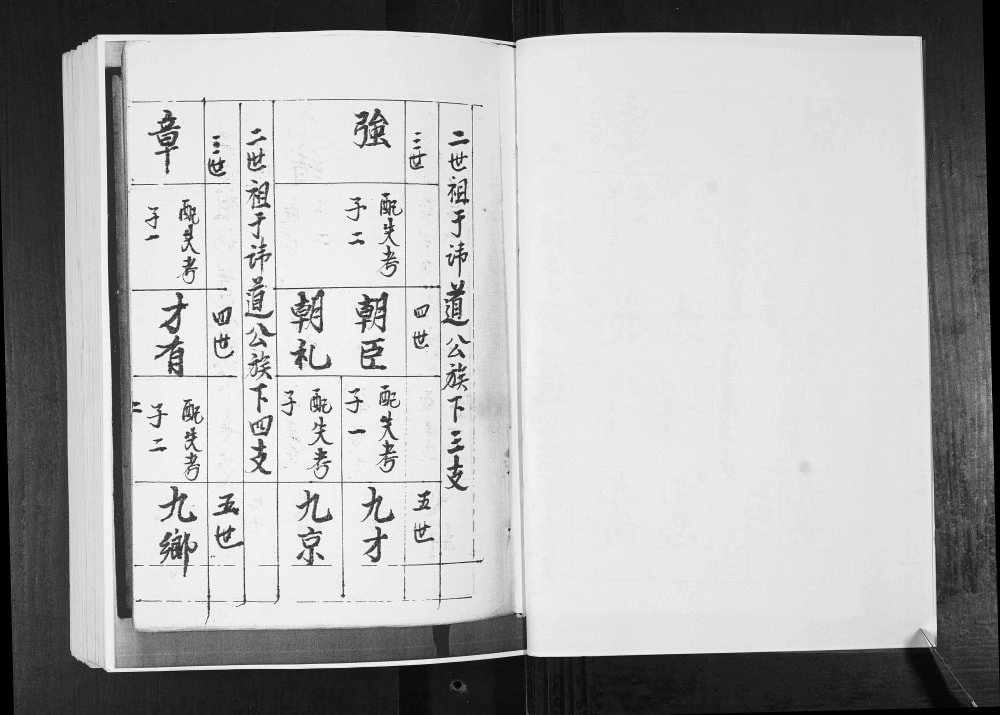 二世祖于讳道公族下三支
三世
四世
五世
強
配失考
子二
朝臣
配失考
子一
九才
朝礼
配失考
子
九京
二世祖于讳道公族下四支
三世
四世
五世
章
配失考
子一
才有
配失考
子二
九鄉
二